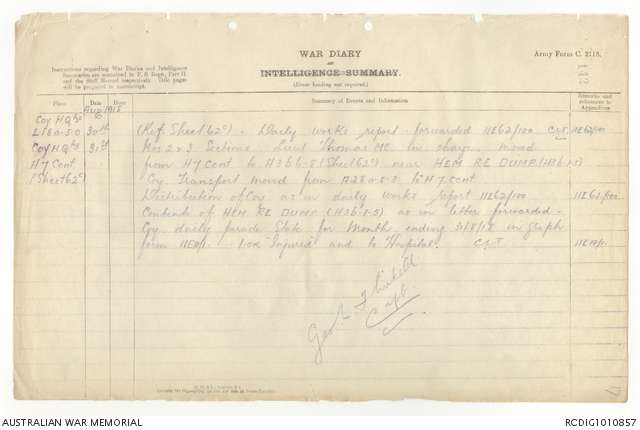 WAR DIARY
or
INTELLIGENCE SUMMARY.
(Erase heading not required).
Army Form C. 2118.
Instructions regarding War Diaries and Intelligence
Summaries are contained in F. S. Regs., Part II.
and the Staff Manual respectively. Title pages
will be prepared in manuscript.
Place Date Hour Summary of Events and Information Remarks and references to Appendices
Aug 1918
Coy H.Qrs
L18a.5.0 30th (Ref. Sheet 62c) - Daily works report forwarded 11E62/100 11E62/100
Coy H.Qrs 31st Nos 2 & 3 Sections Lieut Thomas MC in charge moved
H7 Cent from H7 Cent to H3b6.5 (Sheet 62c) near HEM RE DUMP
(Sheet 62c) Coy Transport moved from to H7 cent
Distribution of Coy as in daily works report 11E62/100 11E62/100
Contents of HEM RE DUMP (H3b.5.5) as in letter forwarded.
Coy daily parade State for Month ending 31/8/18 in graph
form 11E19/1. 1.OR Injured and to Hospital.
11E19/1
Capt.
AUSTRALIAN WAR MEMORIAL
RCDIG1010857